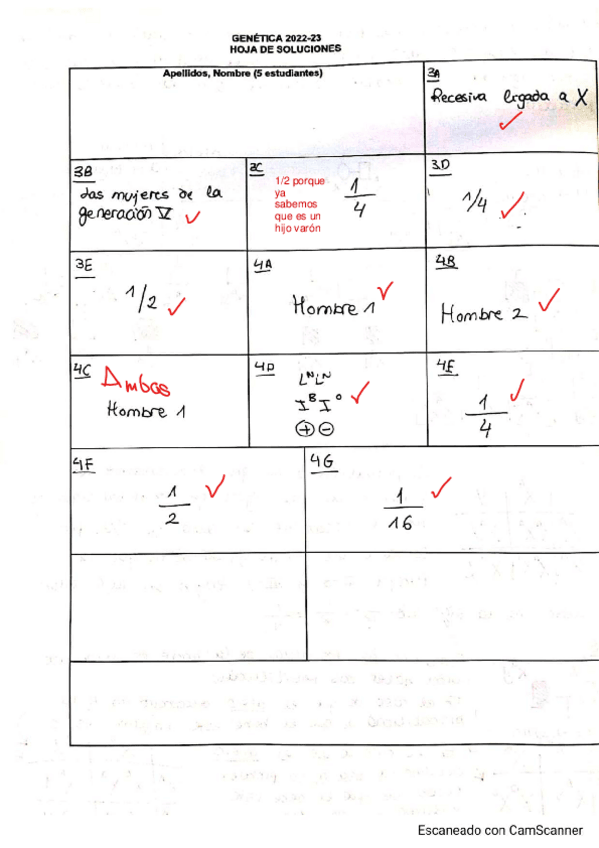 GENÉTICA 2022-23
HOJA DE SOLUCIONES
Apellidos, Nombre (5 estudiantes)
3A
Recesiva ligada a X
3B
Las mujeres de la
generación V
3C
1/2 porque
ya
sabemos
que es un
hijo varón
1
4
3D
1/4
3E
1/2
4A
Hombre 1
4B
Hombre 2
4C
Ambos
Hombre 1
4D
LᴺLᴺ
IᴮI⁰
⊕⊖
4E
1
4
4F
1
2
4G
1
16
Escaneado con CamScanner